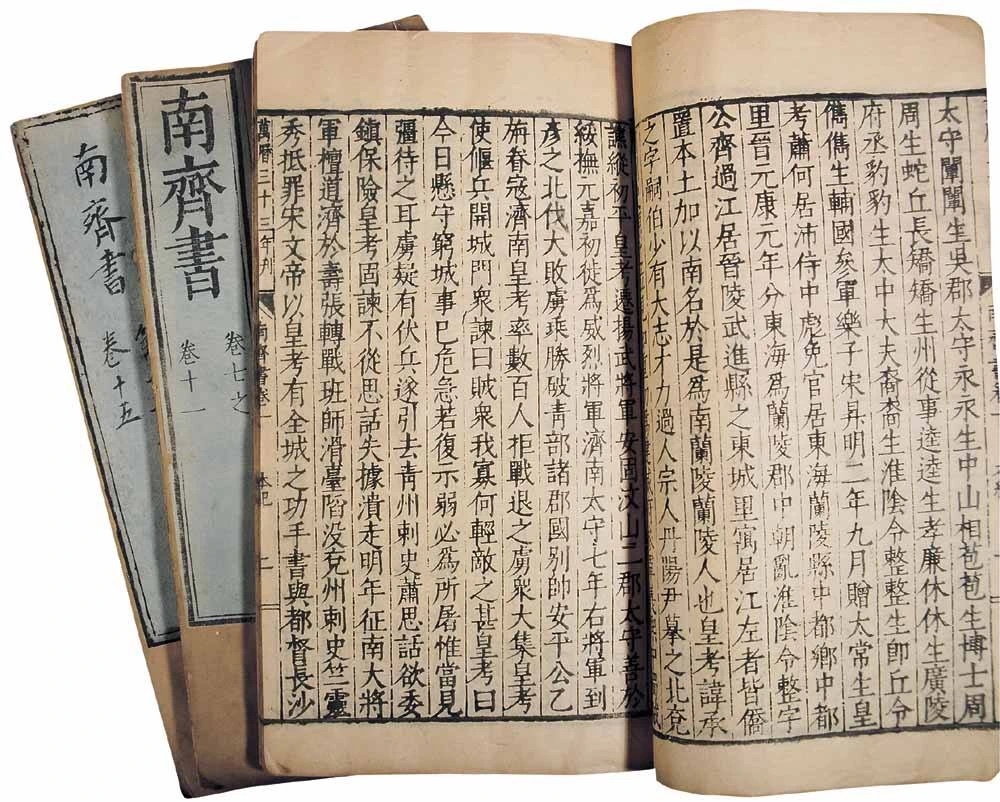 太守闡闡生吳郡太守永永生中山相苞苞生博士周
周生蛇丘長矯矯生州從事逵逵生孝廉休休生廣陵
府丞豹豹生太中大夫裔裔生淮陰令整整生即丘令
儁儁生輔國參軍樂子宋昇明二年九月贈太常生皇
考蕭何居沛侍中彪免官居東海蘭陵縣中都鄉中都
里晉元康元年分東海為蘭陵郡中朝亂淮陰令整字
公齊過江居晉陵武進縣之東城里寓居江左者皆僑
置本土加以南名於是為南蘭陵蘭陵人也皇考諱承
之字嗣伯少有大志才力過人宗人丹陽尹摹之北兗
譙縱初平皇考遷揚武將軍安固汶山二郡太守善於
綏撫元嘉初徙為威烈將軍濟南太守七年右將軍到
彥之北伐大敗虜乘勝破青部諸郡國別帥安平公乙
旃眷寇濟南皇考率數百人拒戰退之虜衆大集皇考
使偃兵開城門衆諫曰賊衆我寡何輕敵之甚皇考曰
今日懸守窮城事已危急若復示弱必為所屠惟當見
彊待之耳虜疑有伏兵遂引去青州刺史蕭思話欲委
鎮保險皇考固諫不從思話失據潰走明年征南大將
軍檀道濟於壽張轉戰班師滑臺陷沒兗州刺史竺靈
秀抵罪宋文帝以皇考有全城之功手書與都督長沙
萬曆三十三年刊 南齊書卷一 本紀
南齊書
卷七之
卷十一
南齊書
卷十五